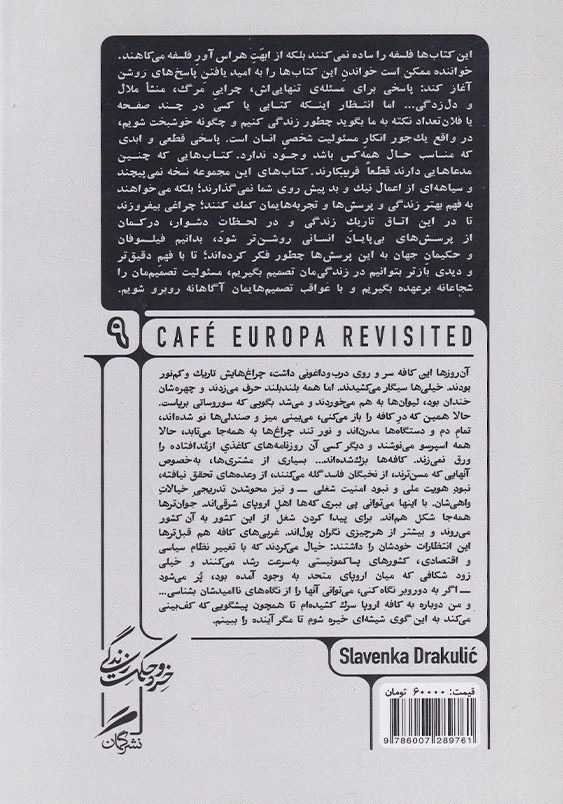 این کتاب‌ها فلسفه را ساده نمی‌کنند بلکه از ابهتِ هراس‌آور فلسفه می‌کاهند.
خواننده ممکن است خواندنِ این کتاب‌ها را به امید یافتنِ پاسخ‌های روشن
آغاز کند: پاسخی برای مسئله‌ی تنهایی‌اش، چراییِ مرگ، منشأ ملال
و دل‌زدگی... اما انتظار اینکه کتابی یا کسی در چند صفحه
یا فلان‌تعداد نکته به ما بگوید چطور زندگی کنیم و چگونه خوشبخت شویم،
در واقع یک‌جور انکارِ مسئولیت شخصیِ انسان است. پاسخی قطعی و ابدی
که مناسب حال همه‌کس باشد وجود ندارد. کتاب‌هایی که چنین
مدعاهایی دارند قطعاً فریبکارند. کتاب‌های این مجموعه نسخه نمی‌پیچند
و سیاهه‌ای از اعمال نیک و بد پیش روی شما نمی‌گذارند؛ بلکه می‌خواهند
به فهم بهتر زندگی و پرسش‌ها و تجربه‌هایمان کمک کنند؛ چراغی بیفروزند
تا در این اتاق تاریک زندگی و در لحظات دشوار، درکمان
از پرسش‌های بی‌پایان انسانی روشن‌تر شود، بدانیم فیلسوفان
و حکیمان جهان به این پرسش‌ها چطور فکر کرده‌اند؛ تا با فهم دقیق‌تر
و دیدی بازتر بتوانیم در زندگی‌مان تصمیم بگیریم، مسئولیت تصمیم‌مان را
شجاعانه برعهده بگیریم و با عواقب تصمیم‌هایمان آگاهانه روبرو شویم.
۹
CAFÉ EUROPA REVISITED
آن‌روزها این کافه سر و روی درب‌وداغونی داشت، چراغ‌هایش تاریک و کم‌نور
بودند. خیلی‌ها سیگار می‌کشیدند. اما همه بلندبلند حرف می‌زدند و چهره‌شان
خندان بود، لیوان‌ها به هم می‌خوردند و می‌شد بگویی که سوروساتی برپاست.
حالا همین که درِ کافه را باز می‌کنی، می‌بینی میز و صندلی‌ها نو شده‌اند،
تمام دم و دستگاه‌ها مدرن‌اند و نور تند چراغ‌ها به همه‌جا می‌تابد، حالا
همه اسپرسو می‌نوشند و دیگر کسی آن روزنامه‌های کاغذیِ ازمُدافتاده را
ورق نمی‌زند. کافه‌ها بزک‌شده‌اند... بسیاری از مشتری‌ها، به‌خصوص
آنهایی که مسن‌ترند، از نخبگان فاسد گله می‌کنند، از وعده‌های تحقق نیافته،
نبودِ هویت ملی و نبود امنیت شغلی ــ و نیز محوشدن تدریجیِ خیالاتِ
واهی‌شان. با اینها می‌توانی پی ببری که‌ها اهلِ اروپای شرقی‌اند. جوان‌ترها
همه‌جا شکل هم‌اند. برای پیدا کردن شغل از این کشور به آن کشور
می‌روند و بیشتر از هرچیزی نگران پول‌اند. غربی‌های کافه هم قبل‌ترها
این انتظارات خودشان را داشتند: خیال می‌کردند که با تغییر نظام سیاسی
و اقتصادی، کشورهای پساکمونیستی به‌سرعت رشد می‌کنند و خیلی
زود شکافی که میان اروپای متحد به وجود آمده بود، پُر می‌شود
ــ اگر به دوروبر نگاه کنی، می‌توانی آنها را از نگاه‌های ناامیدشان بشناسی...
و من دوباره به کافه اروپا سرک کشیده‌ام تا همچون پیشگویی که کف‌بینی
می‌کند به این گوی شیشه‌ای خیره شوم تا مگر آینده را ببینم.
Slavenka Drakulić
خرد و حکمت زندگی
نشر گمان
قیمت: ۶۰۰۰۰ تومان
9 786007 289761